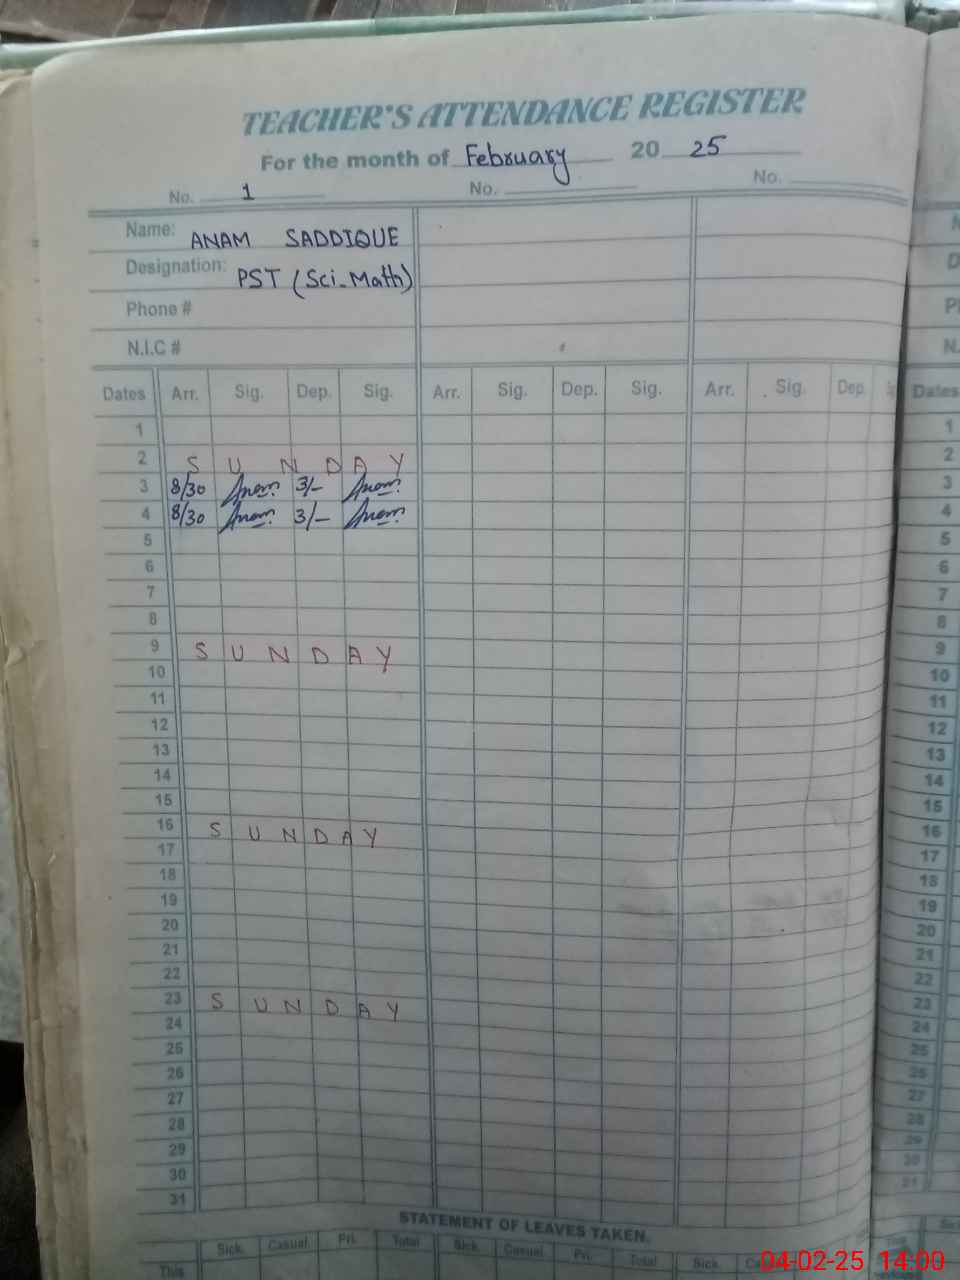 TEACHER'S ATTENDANCE REGISTER
For the month of February 20 25
No. 1 No. No.
Name: ANAM SADDIQUE
Designation: PST (Sci-Math)
Phone #
N.I.C #
Dates Arr. Sig. Dep. Sig. Arr. Sig. Dep. Sig. Arr. Sig. Dep Dates
1 1
2 SUNDAY 2
3 8/30 Anam 3/- Anam 3
4 8/30 Anam 3/- Anam 4
5 5
6 6
7 7
8 8
9 SUNDAY 9
10 10
11 11
12 12
13 13
14 14
15 15
16 SUNDAY 16
17 17
18 18
19 19
20 20
21 21
22 22
23 SUNDAY 23
24 24
25 25
26 26
27 27
28 28
29 29
30 30
31 31
STATEMENT OF LEAVES TAKEN.
Sick. Casual. Pri. Total Sick. Casual. Pri. Total Sick.
This
04-02-25 14:00